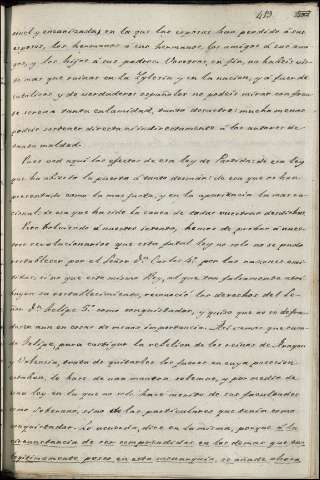 413
cruel y encarnizada, en la que las esposas han perdido á sus
esposos, los hermanos á sus hermanos, los amigos á sus ami-
gos, y los hijos á sus padres. Vosotros, en fin, no habeis vis-
to mas que ruinas en la Iglesia y en la nacion, y á fuer de
catolicos y de verdaderos españoles no podeis mirar con fren-
te serena tanta calamidad, tanto desastre; mucho menos
podeis sostener directa ni indirectamente á los autores de
tanta maldad.
Pues ved aquí los efectos de esa ley de Partida: de esa ley
que ha abierto la puerta á tanto desman: de esa que os han
presentado como la mas justa, y en la apariencia la mas ra-
cional: de esa que ha sido la causa de todas vuestras desdichas.
Pero volviendo á nuestro intento, hemos de probar á nues-
tros revolucionarios que esta fatal ley no solo no se pudo
restablecer por el Señor Dn. Carlos 4o. por las razones emi-
tidas, si no que este mismo Rey, al que tan falsamente atri-
buyen su restablecimiento, reconoció los derechos del Se-
ñor Dn. Felipe 5o. como conquistador, y quiso que no se defrau-
dase aun en cosas de menos importancia. Asi vemos que cuan-
do Felipe, para castigar la rebelion de los reinos de Aragon
y Valencia, trata de quitarles los fueros en cuya posesion
estaban, lo hace de una manera solemne, y por medio de
una ley en la que no solo hace merito de sus facultades
como Soberano, sino de las particulares que tenia como
conquistador. Lo acuerda, dice en la misma, porque á la
circunstancia de ser comprendidos en los demas que tan
legitimamente poseo en esta monarquía, se añade ahora